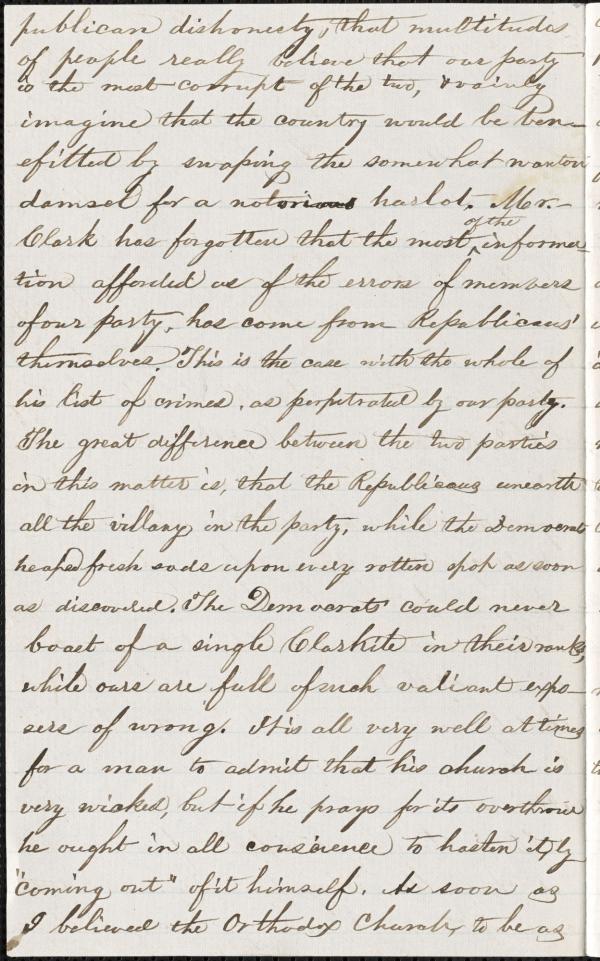 publican dishonesty, that multitudes
of people really believe that our party
is the most corrupt of the two, & vainly
imagine that the country would be ben-
efitted by swaping the somewhat wanton
damsel for a notorious harlot. Mr.-
Clark has forgotten that the most of the informa-
tion afforded us of the errors of members
of our party, has come from Republicans'
themselves. This is the case with the whole of
his list of crimes, as perpetrated by our party.
The great difference between the two parties
in this matter is, that the Republicans unearth
all the villany in the party, while the Democrats
heaped fresh sods upon every rotten spot as soon
as discovered. The Democrats could never
boast of a single Clarkite in their ranks,
while ours are full of such valiant expo-
sers of wrong. It is all very well at times
for a man to admit that his church is
very wicked, but if he prays for its overthrow
he ought in all conscience to hasten it, by
"coming out" of it himself. As soon as
I believed the Orthodox Church, to be as